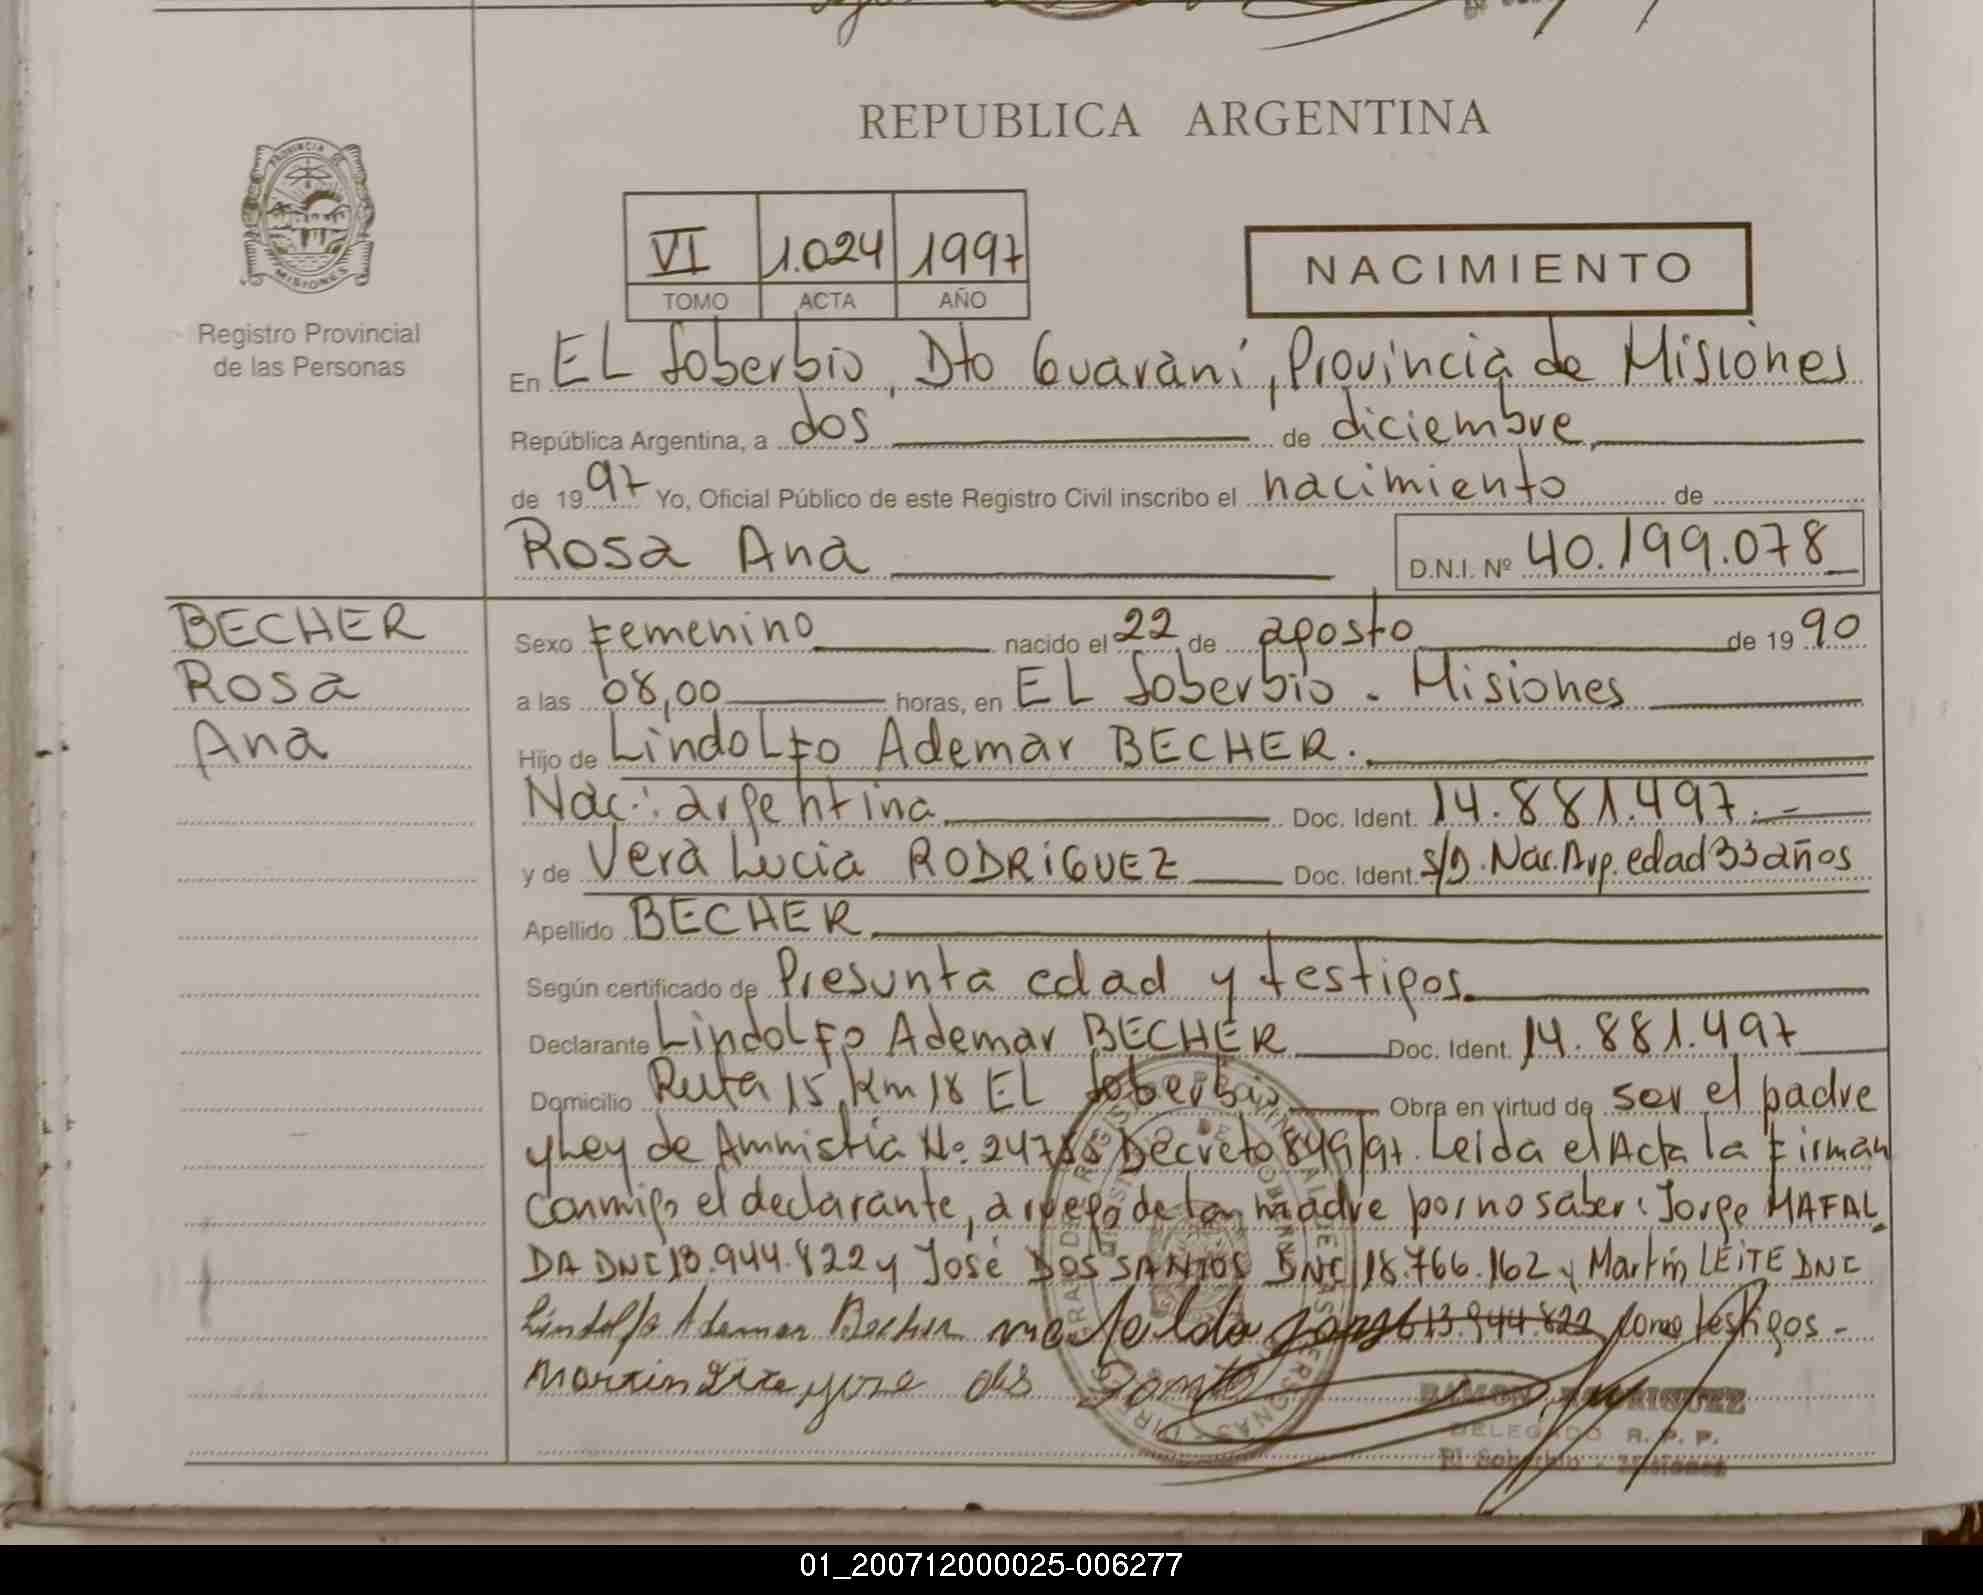 REPUBLICA ARGENTINA
PROVINCIA DE
MISIONES
Registro Provincial
de las Personas
VI 1.024 1997
TOMO ACTA AÑO
NACIMIENTO
En EL Soberbio, Dto Guaraní, Provincia de Misiones
República Argentina, a dos de diciembre,
de 1997 Yo, Oficial Público de este Registro Civil inscribo el nacimiento de
Rosa Ana D.N.I. Nº 40.199.078
BECHER
Rosa
Ana
Sexo Femenino nacido el 22 de agosto de 1990
a las 08,00 horas, en EL Soberbio - Misiones
Hijo de Lindolfo Ademar BECHER.
Nac: argentina Doc. Ident. 14.881.497.-
y de Vera Lucia RODRIGUEZ Doc. Ident. S/D. Nac. Arg. edad 33 años
Apellido BECHER
Según certificado de Presunta edad y testigos.
Declarante Lindolfo Ademar BECHER Doc. Ident. 14.881.497
Domicilio Ruta 15 Km 18 EL Soberbio Obra en virtud de ser el padre
y Ley de Amnistía Nº 24755 Decreto 849/97. Leida el Acta la Firman
conmigo el declarante, a ruego de la madre por no saber: Jorge MAFAL
DA DNI 13.944.822 y José DOS SANTOS DNI 18.766.162 y Martín LEITE DNI
Lindolfo Ademar Becher 13.944.822 como testigos-
Martin
RAMON RODRIGUEZ
DELEGADO R. P. P.
El Soberbio - Misiones
01_200712000025-006277